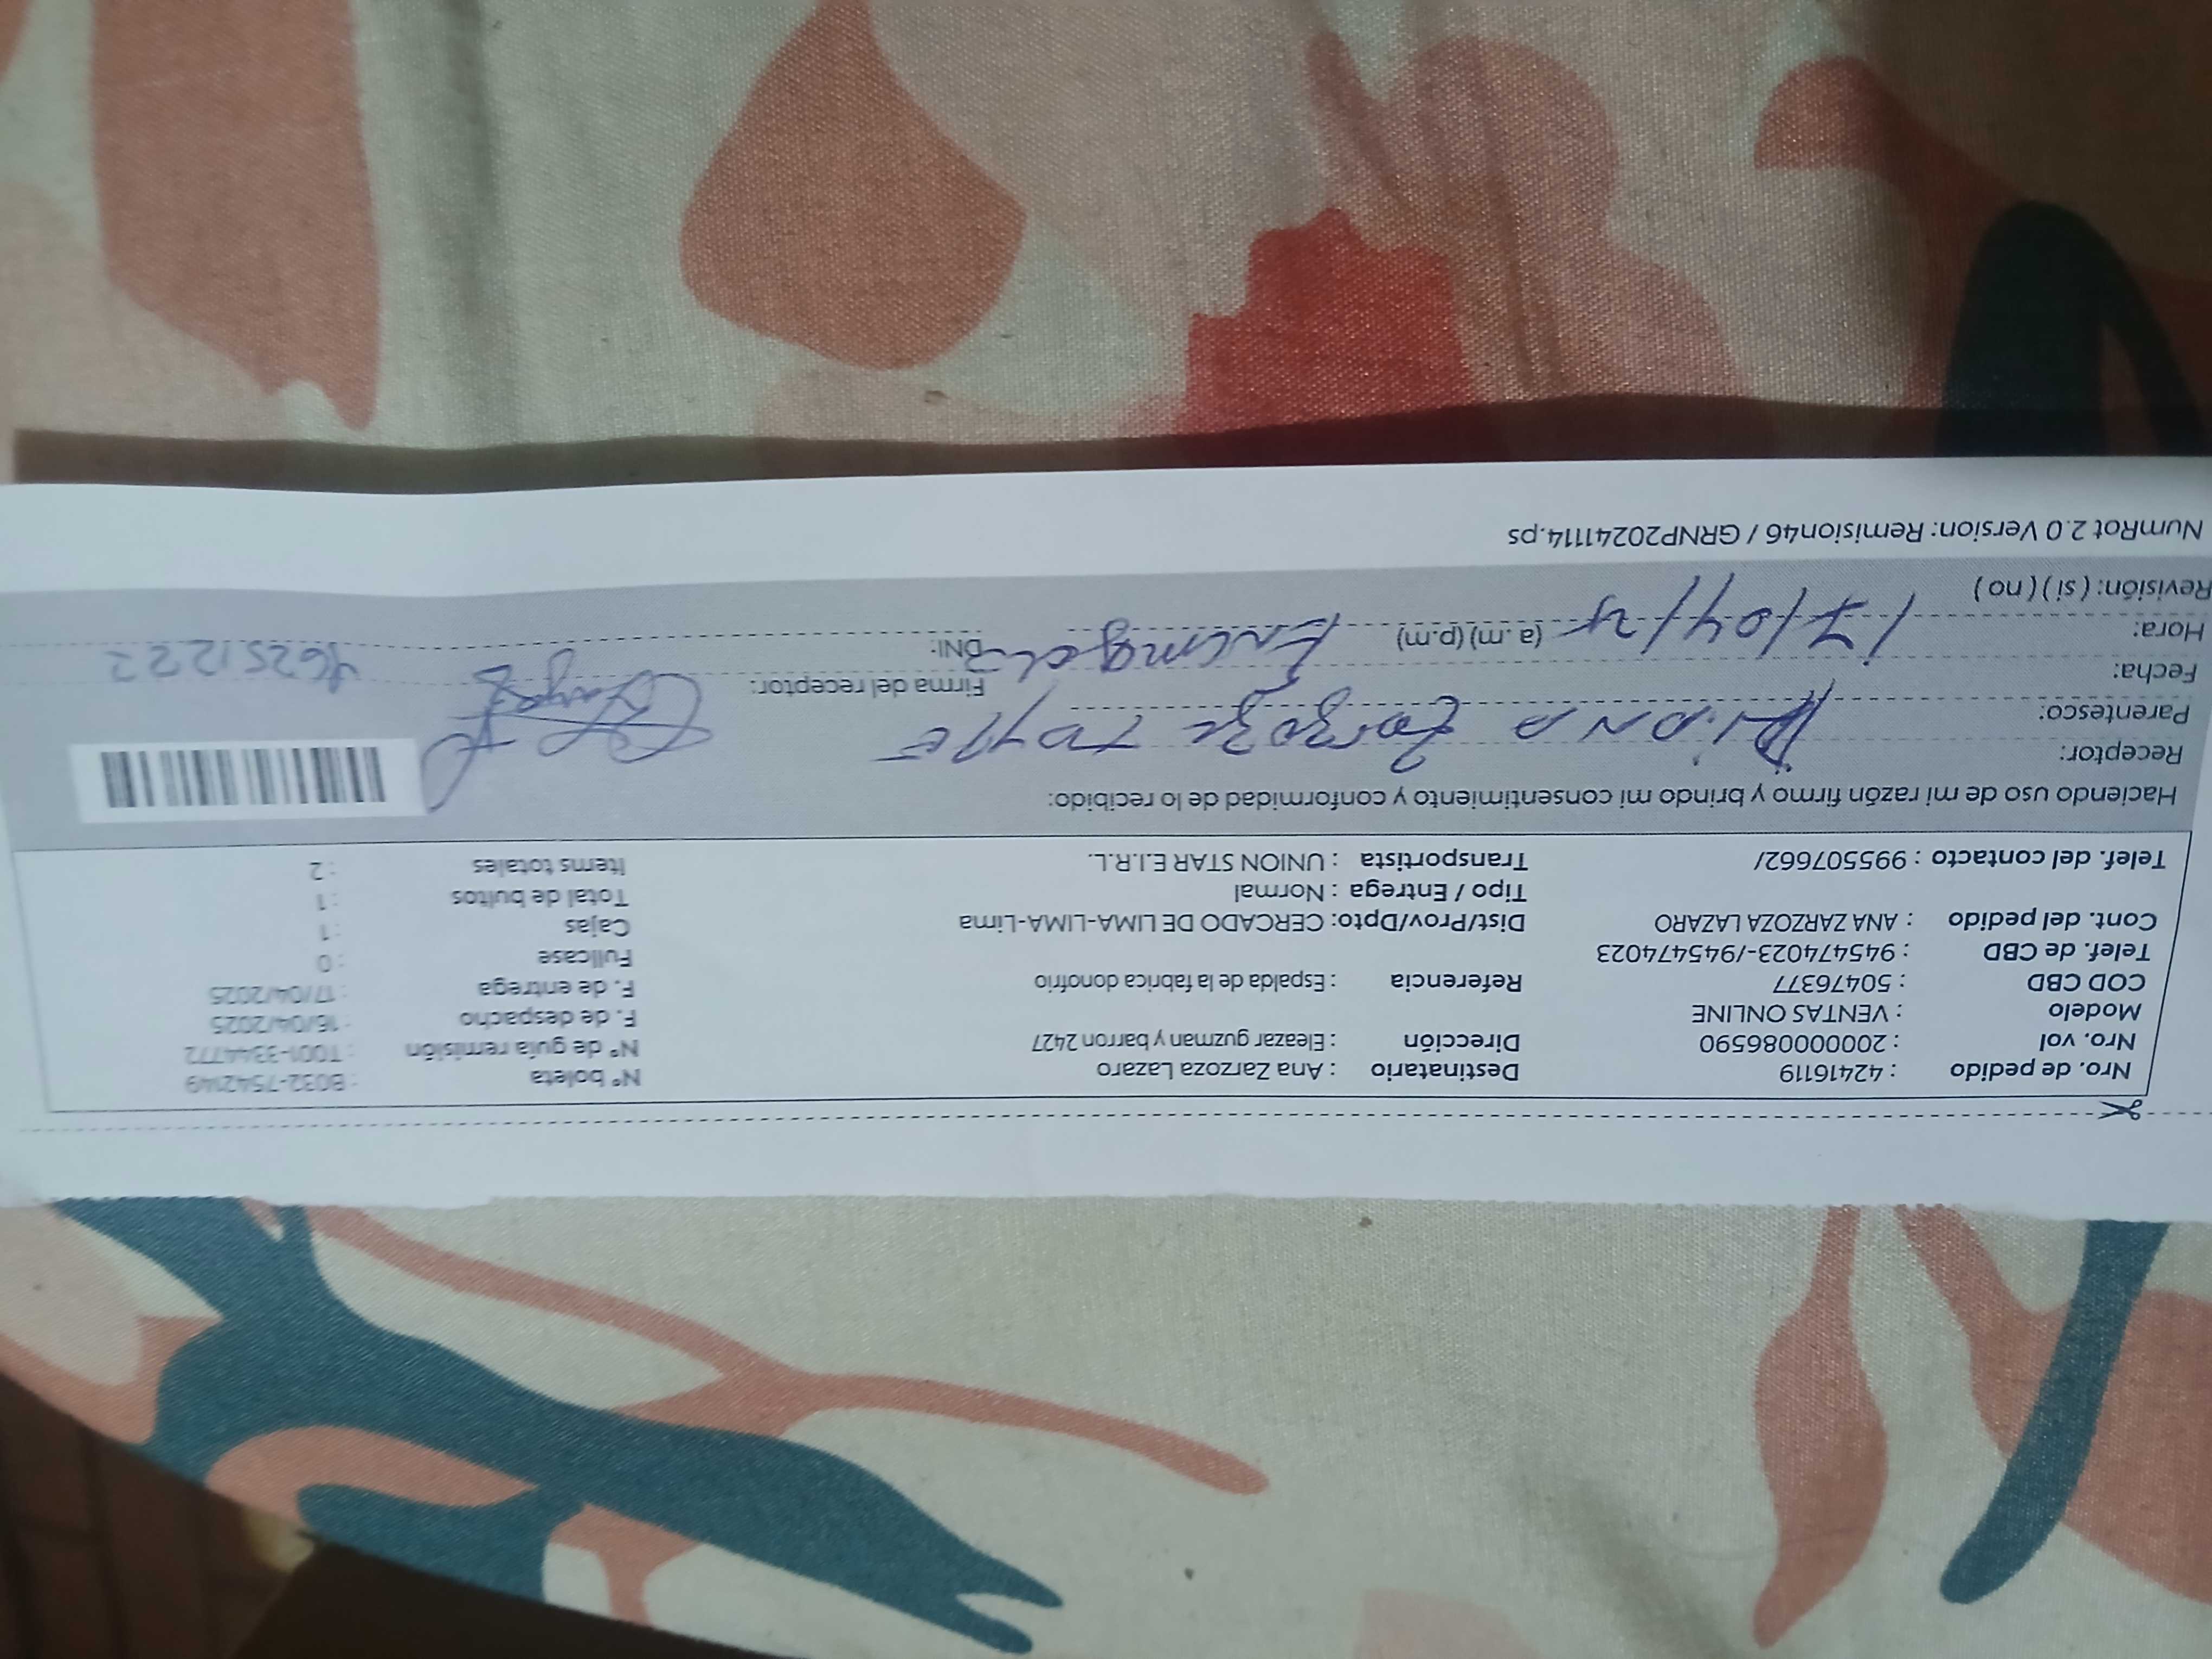 Nro. de pedido : 42416119 Destinatario : Ana Zarzoza Lazaro Nº boleta : B032-7542149
Nro. vol : 2000086590 Dirección : Eleazar guzman y barron 2427 Nº de guía remisión : T001-3344772
Modelo : VENTAS ONLINE F. de despacho : 16/04/2025
COD CBD : 50476377 Referencia : Espalda de la fabrica donofrio F. de entrega : 17/04/2025
Telef. de CBD : 945474023-/945474023 Fullcase : 0
Cont. del pedido : ANA ZARZOZA LAZARO Dist/Prov/Dpto: CERCADO DE LIMA-LIMA-Lima Cajas : 1
Tipo / Entrega : Normal Total de bultos : 1
Telef. del contacto : 995507662/ Transportista : UNION STAR E.I.R.L. Items totales : 2
Haciendo uso de mi razón firmo y brindo mi consentimiento y conformidad de lo recibido:
Receptor:
Parentesco: Zarzoza
Fecha: Firma del receptor:
Hora: 17/04/25 (a.m) (p.m) DNI: 16251222
Revisión: ( si ) ( no )
NumRot 2.0 Version: Remision46 / GRNP20241114.ps